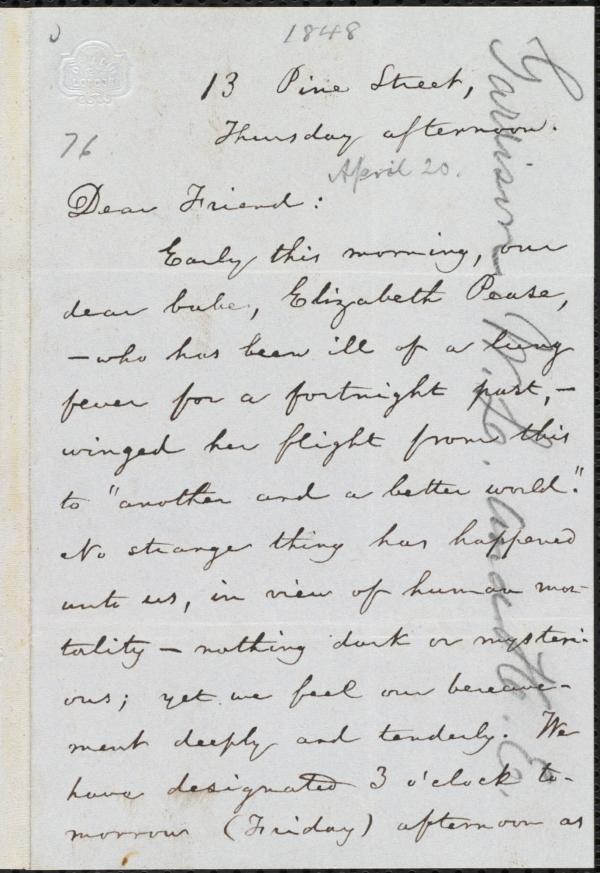 1848
13 Pine Street,
Thursday afternoon.
76
April 20.
Dear Friend:
Early this morning, our
dear babe, Elizabeth Pease,
—who has been ill of a lung
fever for a fortnight past,—
winged her flight from this
to "another and a better world."
No strange thing has happened
unto us, in view of human mor-
tality — nothing dark or mysteri-
ous; yet we feel our bereave-
ment deeply and tenderly. We
have designated 3 o'clock to-
morrow (Friday) afternoon as
Garrison, W. L. and H. E.